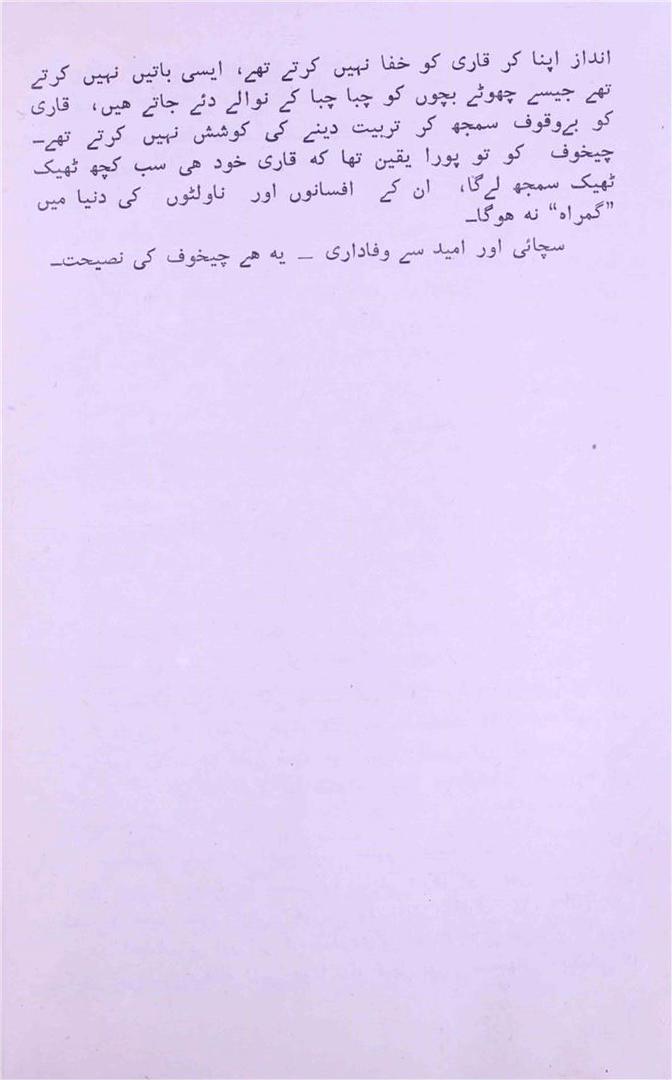 انداز اپنا کر قاری کو خفا نہیں کرتے تھے، ایسی باتیں نہیں کرتے
تھے جیسے چھوٹے بچوں کو چبا چبا کے نوالے دئے جاتے ھیں، قاری
کو بےوقوف سمجھ کر تربیت دینے کی کوشش نہیں کرتے تھے۔
چیخوف کو تو پورا یقین تھا کہ قاری خود ھی سب کچھ ٹھیک
ٹھیک سمجھ لےگا، ان کے افسانوں اور ناولٹوں کی دنیا میں
”گمراہ“ نہ ھوگا۔
سچائی اور امید سے وفاداری — یہ ھے چیخوف کی نصیحت۔